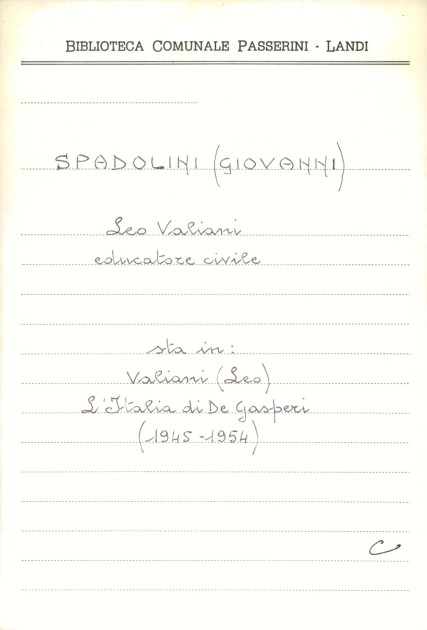 BIBLIOTECA COMUNALE PASSERINI - LANDI
SPADOLINI (GIOVANNI)
Leo Valiani
educatore civile
sta in:
Valiani (Leo)
L'Italia di De Gasperi
(1945-1954)
C